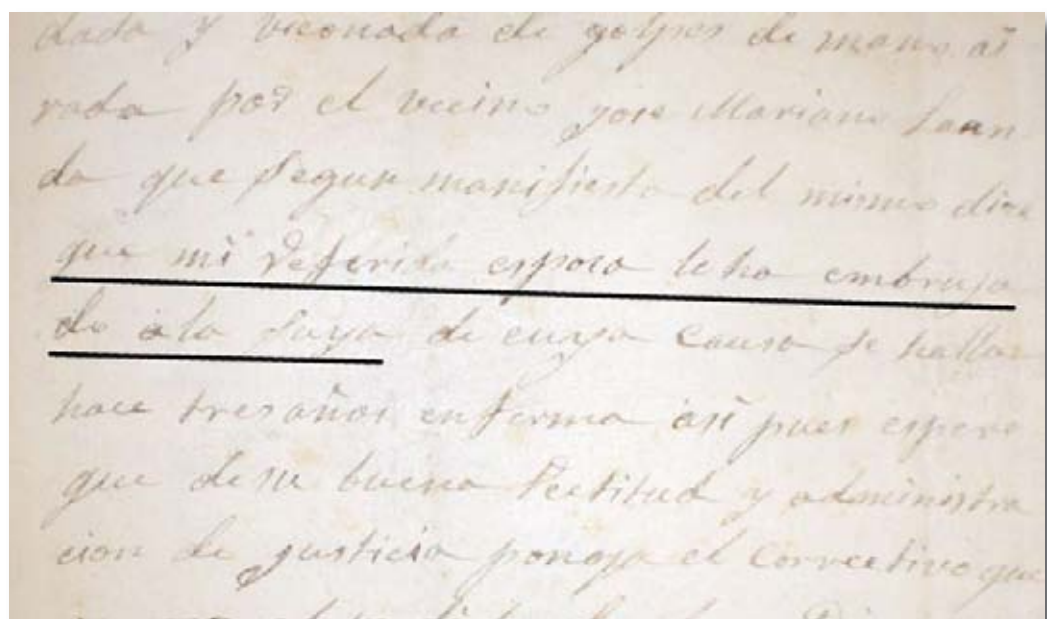 dada y baconada de golpes de mano ai
rada por el vecino Jose Mariano
da que segun manifiesto del mismo dice
que mi referida esposa le ha embruja
do à la suya de cuya causa se halla
hace tres años enferma asi pues espero
que de su buena rectitud y administra
cion de justicia ponga el correctivo que